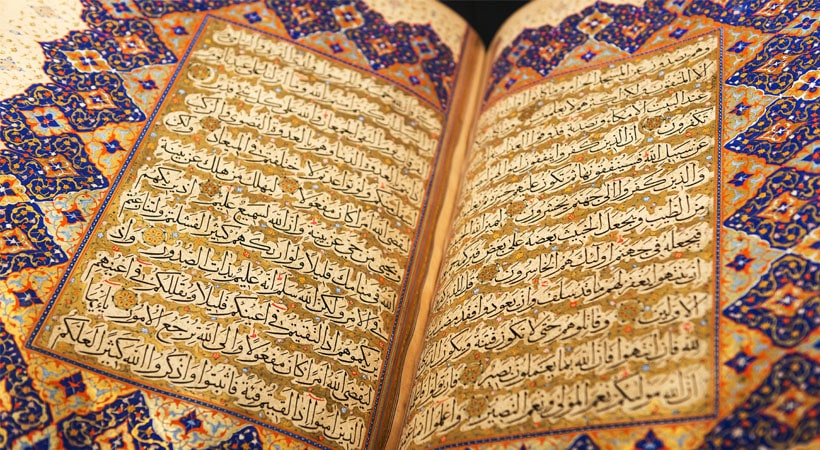 وهم يصدون عن المسجد
الا المتقون ولكن اكثرهم لا يعلمون وما كان صلاتهم
عند البيت الا مكاء وتصدية فذوقوا العذاب بما كنتم
تكفرون ان الذين كفروا ينفقون اموالهم ليصدوا
عن سبيل الله فسينفقونها ثم تكون عليهم حسرة ثم يغلبون
والذين كفروا الى جهنم يحشرون ليميز الله الخبيث
من الطيب ويجعل الخبيث بعضه على بعض فيركمه جميعا
فيجعله في جهنم اولئك هم الخاسرون قل للذين كفروا
ان ينتهوا يغفر لهم ما قد سلف وان يعودوا فقد مضت سنة
الاولين وقاتلوهم حتى لا تكون فتنة ويكون الدين كله
لله فان انتهوا فان الله بما يعملون بصير وان تولوا فاعلموا
ان الله موليكم نعم المولى ونعم النصير واعلموا
اذ انتم بالعدوة الدنيا وهم بالعدوة القصوى والركب
اسفل منكم ولو تواعدتم لاختلفتم في الميعاد ولكن
ليقضي الله امرا كان مفعولا ليهلك من هلك عن بينة
ويحيى من حي عن بينة وان الله لسميع عليم اذ يريكهم
الله في منامك قليلا ولو اريكهم كثيرا لفشلتم ولتنازعتم
في الامر ولكن الله سلم انه عليم بذات الصدور واذ
يريكموهم اذ التقيتم في اعينكم قليلا ويقللكم في اعينهم
ليقضي الله امرا كان مفعولا والى الله ترجع الامور يا ايها
الذين امنوا اذا لقيتم فئة فاثبتوا واذكروا الله كثيرا لعلكم